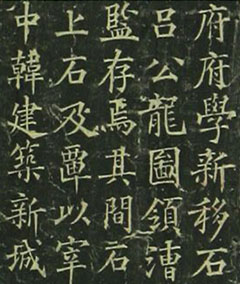 府府學新移石
呂公龍圖領漕
監存焉其間石
上石及覃以宰
中韓建築新城